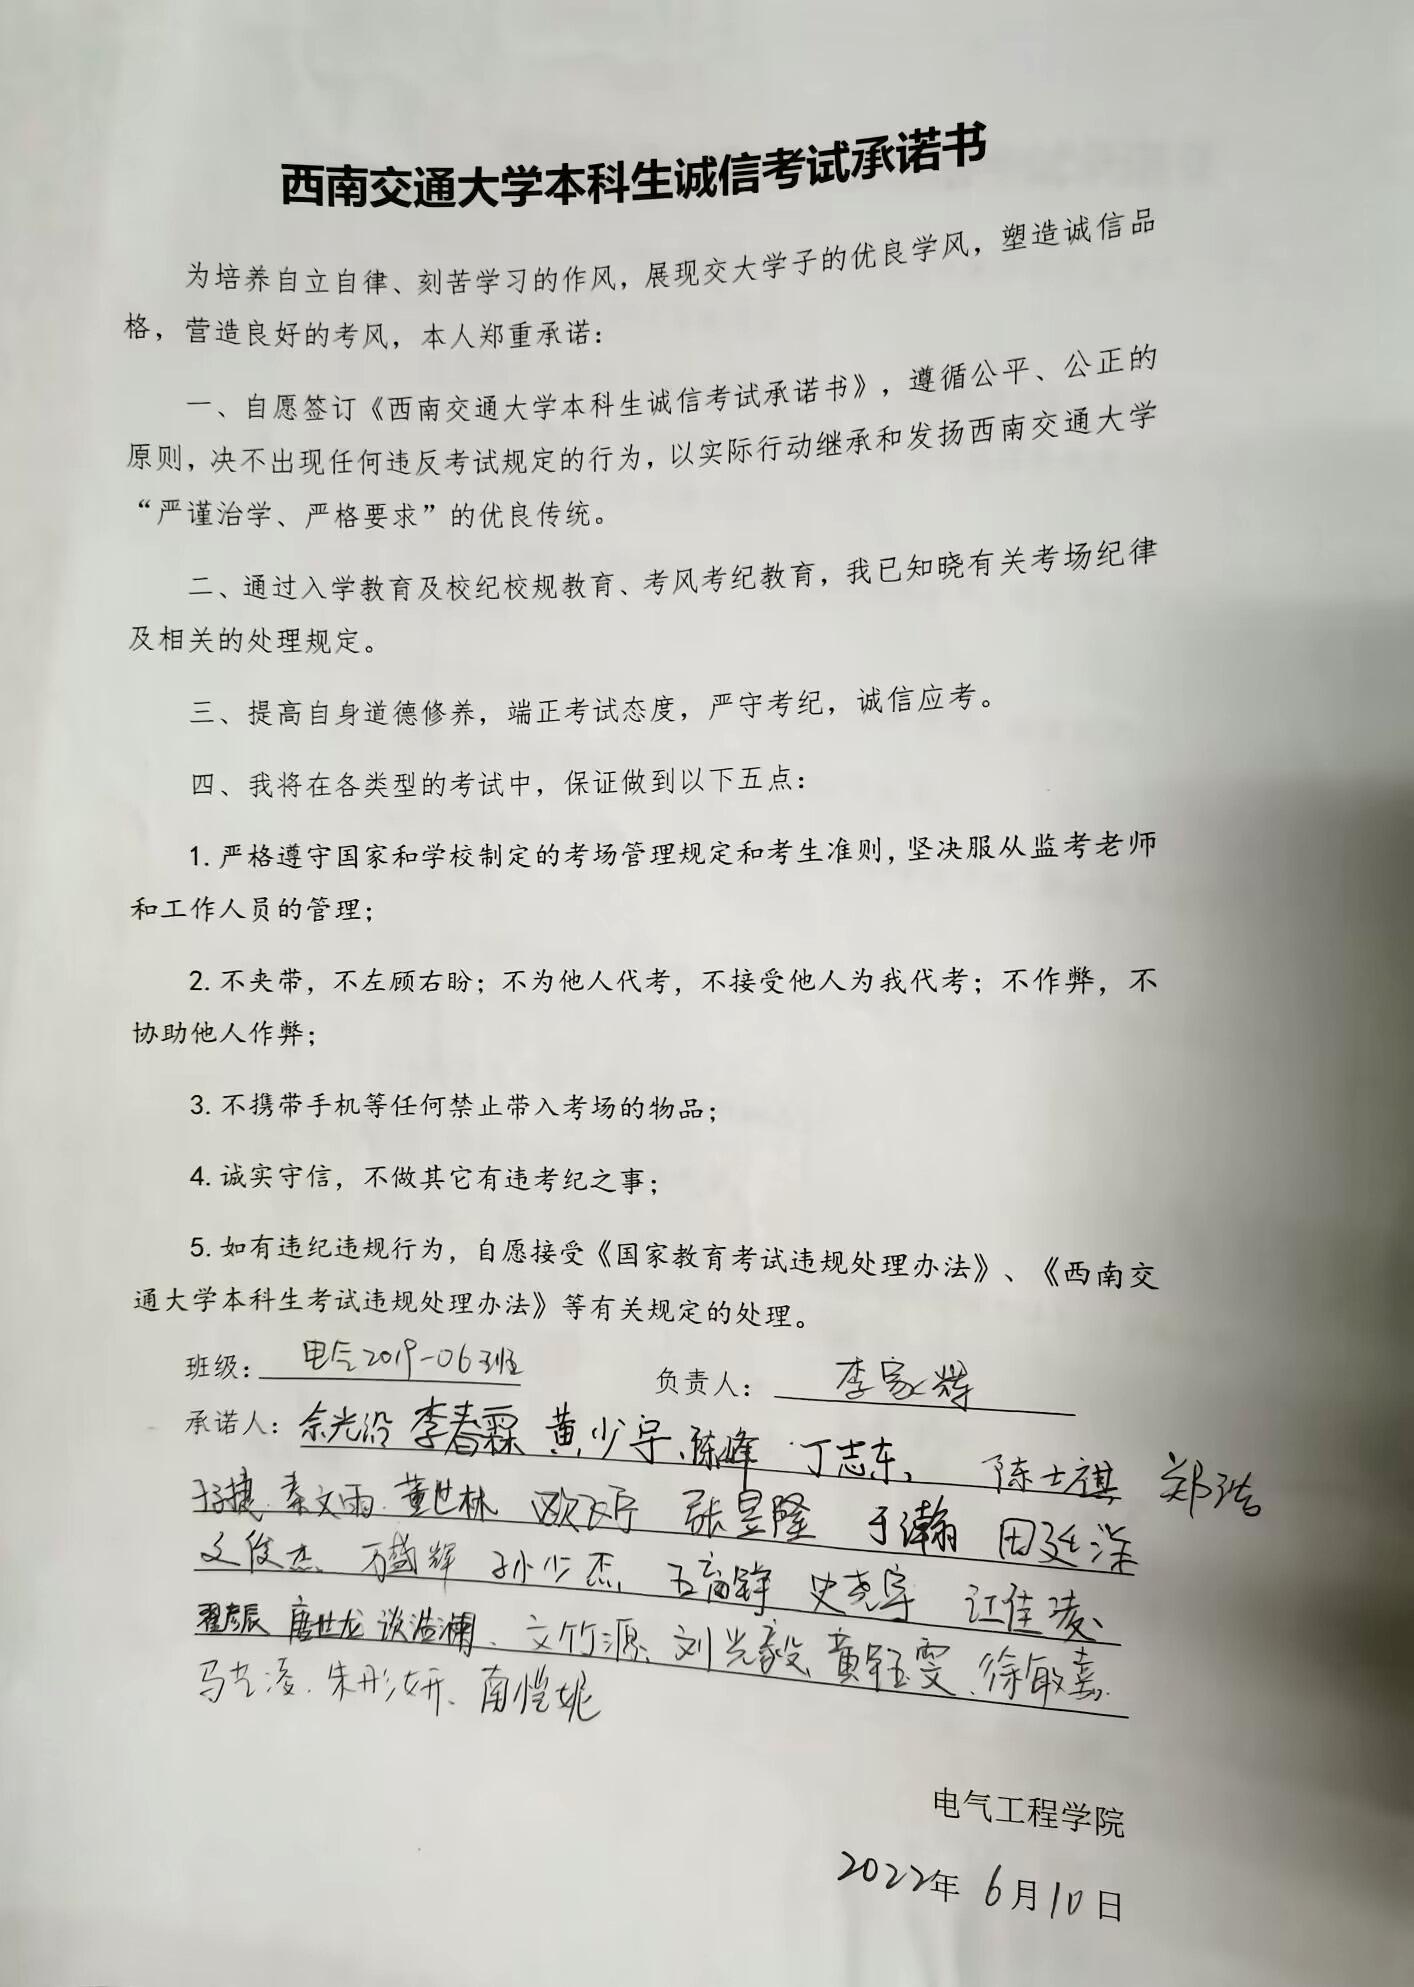 西南交通大学本科生诚信考试承诺书
为培养自立自律、刻苦学习的作风，展现交大学子的优良学风，塑造诚信品
格，营造良好的考风，本人郑重承诺：
一、自愿签订《西南交通大学本科生诚信考试承诺书》，遵循公平、公正的
原则，决不出现任何违反考试规定的行为，以实际行动继承和发扬西南交通大学
“严谨治学、严格要求”的优良传统。
二、通过入学教育及校纪校规教育、考风考纪教育，我已知晓有关考场纪律
及相关的处理规定。
三、提高自身道德修养，端正考试态度，严守考纪，诚信应考。
四、我将在各类型的考试中，保证做到以下五点：
1.严格遵守国家和学校制定的考场管理规定和考生准则，坚决服从监考老师
和工作人员的管理；
2.不夹带，不左顾右盼；不为他人代考，不接受他人为我代考；不作弊，不
协助他人作弊；
3.不携带手机等任何禁止带入考场的物品；
4.诚实守信，不做其它有违考纪之事；
5.如有违纪违规行为，自愿接受《国家教育考试违规处理办法》、《西南交
通大学本科生考试违规处理办法》等有关规定的处理。
班级：电气2019-06班 负责人：李家辉
承诺人：佘光沿 李春霖 黄少宇、陈峰 丁志东、 陈士祺 郑浩
秦文雨 董世林 张昱隆 于瀚 田廷深
文俊杰 万盛辉 孙少杰 史尧宇 江佳凌、
翟彦辰 唐世龙 谈溢澜、文竹源、刘光毅、黄钰雯、徐敏嘉
朱彤妍、南恺妮
电气工程学院
2022年 6月10日